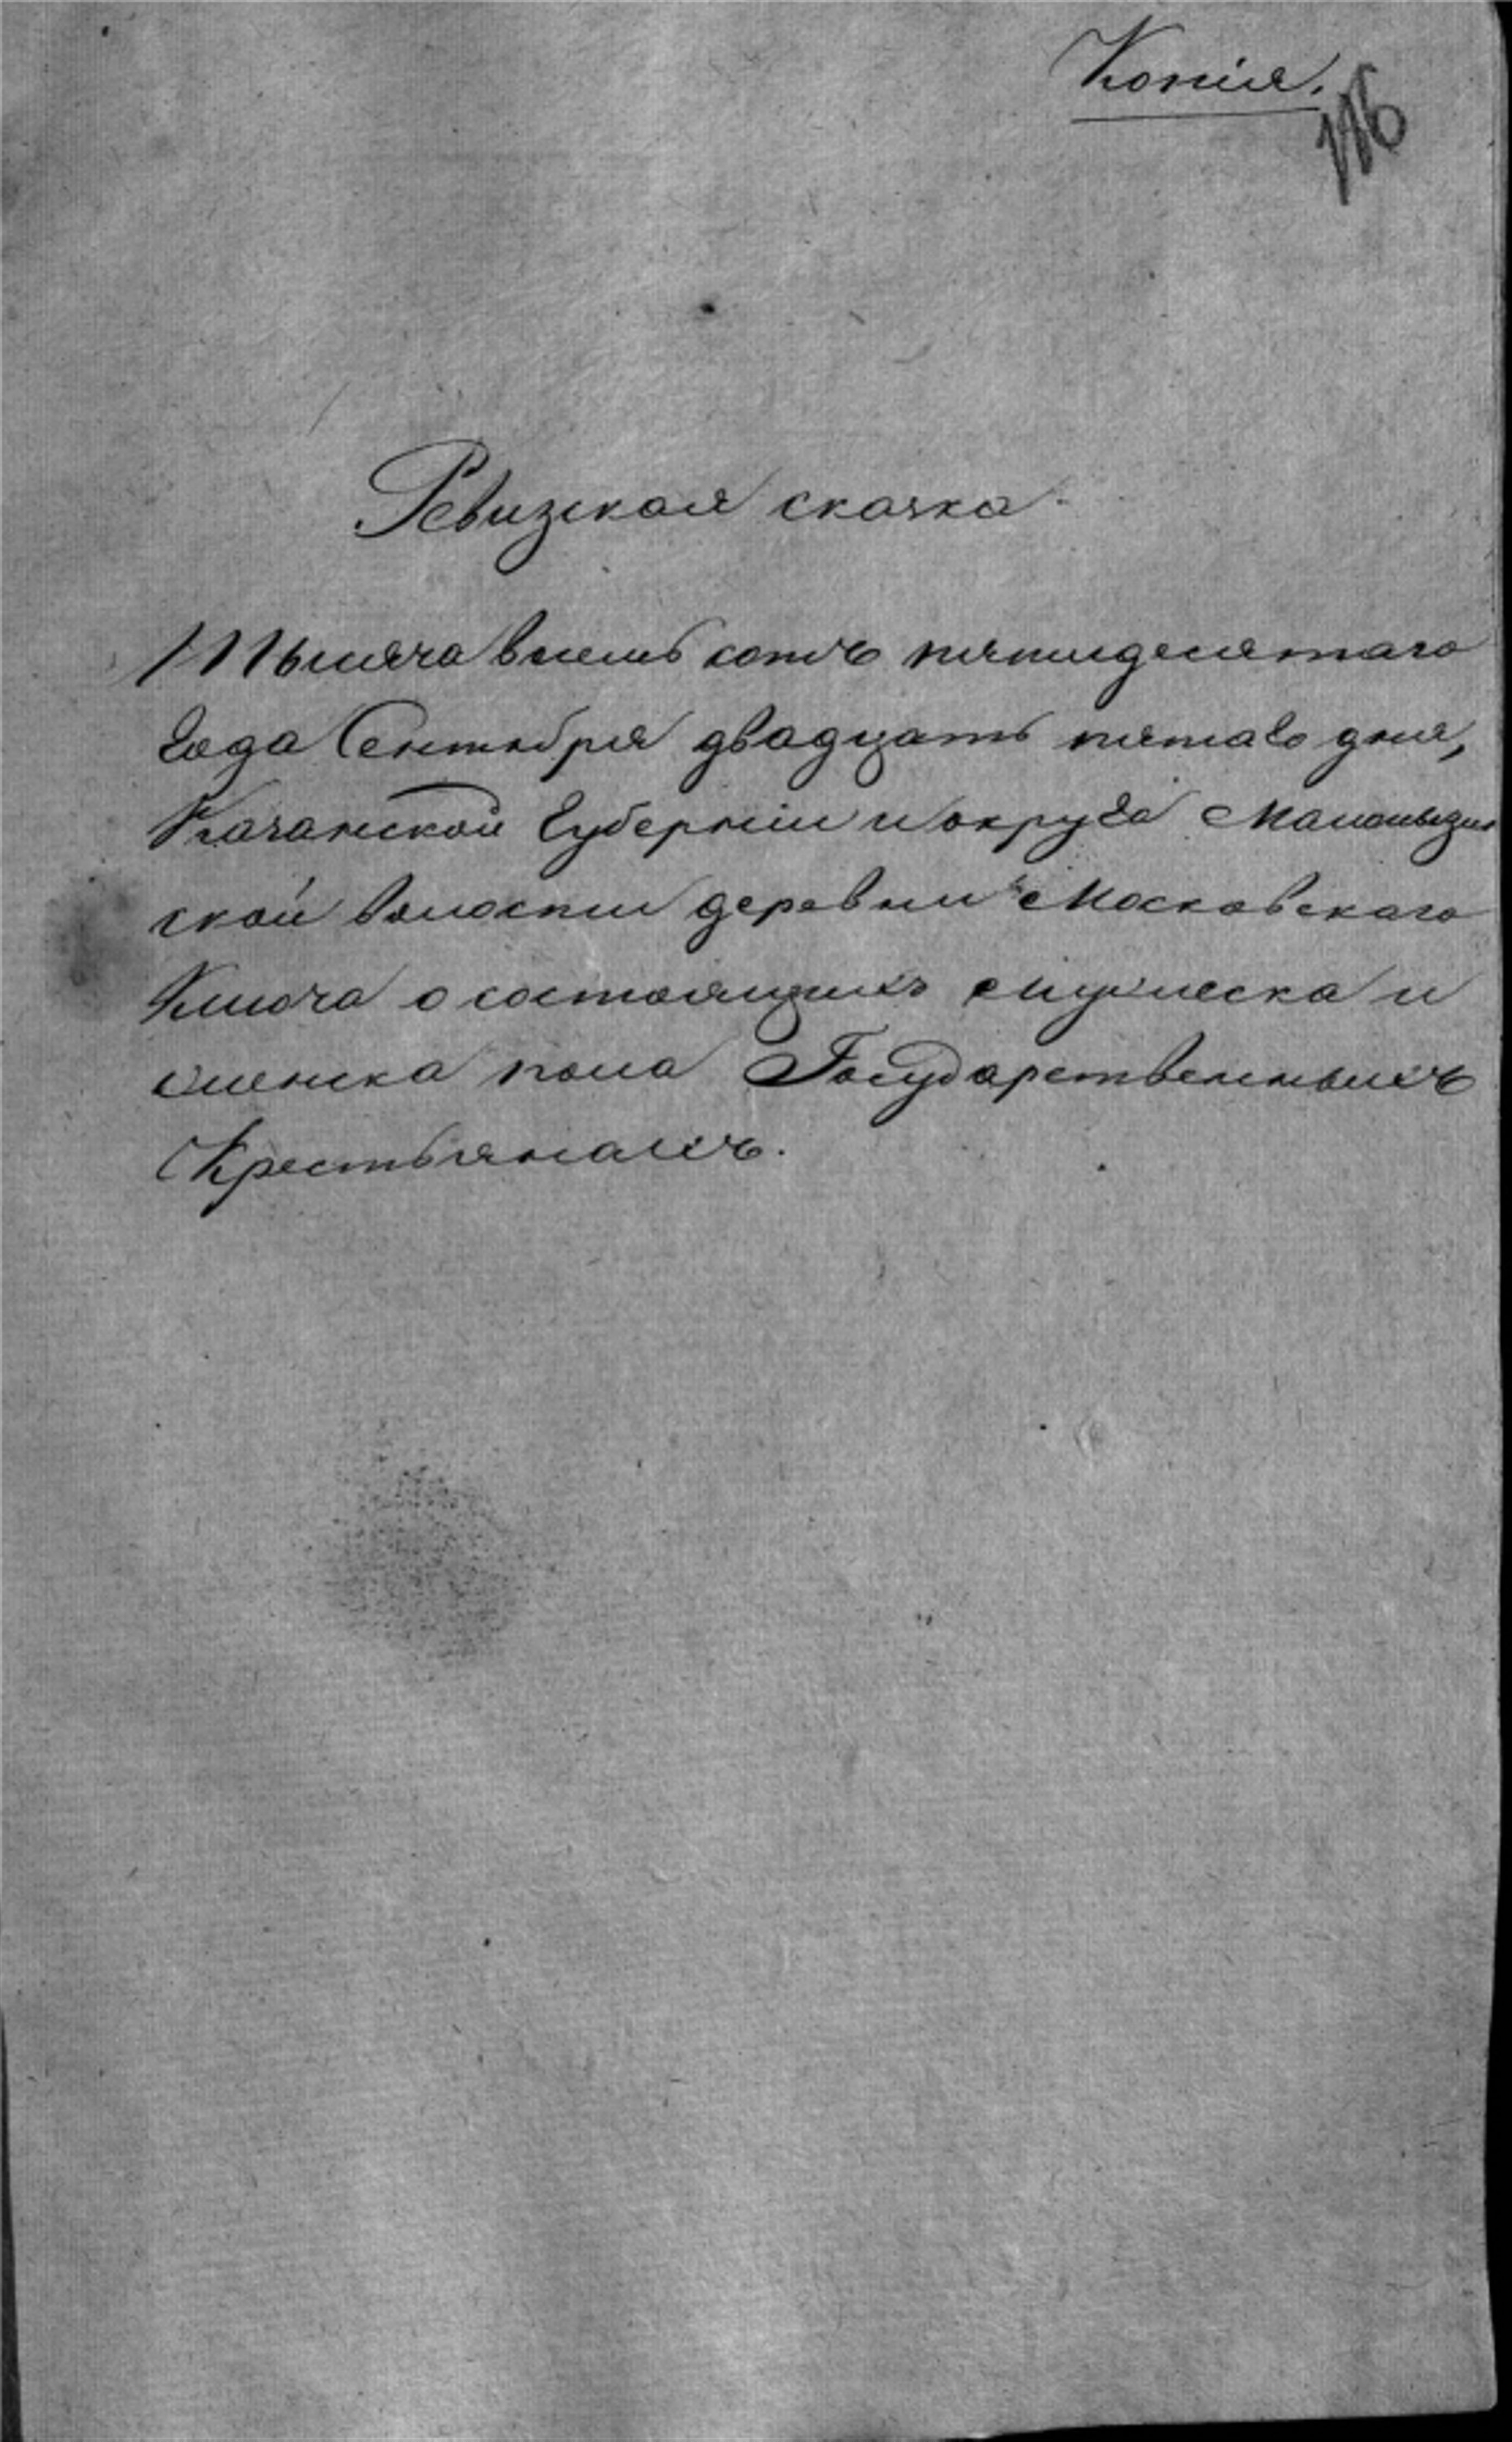 Копія.
116
Ревизская сказка
Тысяча восемь сотъ пятидесятаго
года Сентября двадцать пятаго дня,
Казанской Губерніи и округа
ской волости деревни Московскаго
Ключа о состоящихъ мужеска и
женска пола Государственныхъ
Крестьянахъ.